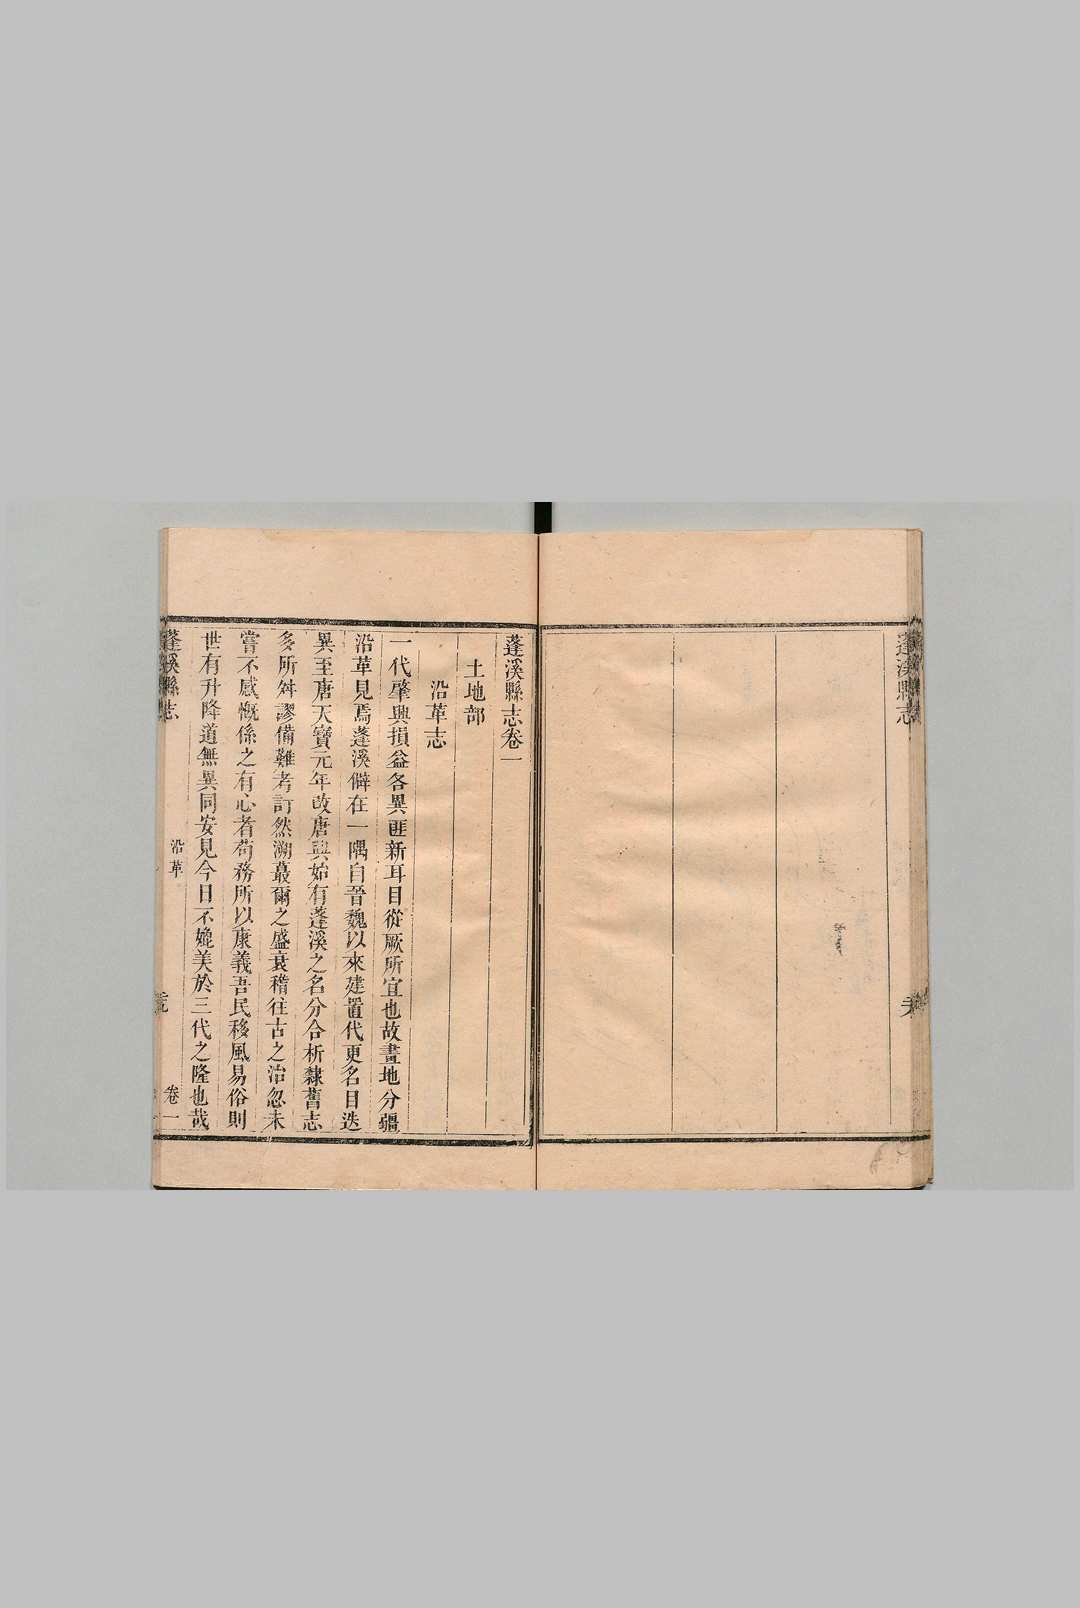 蓬溪縣志
蓬溪縣志卷一
土地部
沿革志
一代肇興損益各異匪新耳目從厥所宜也故畫地分疆
沿革見焉蓬溪僻在一隅自晉魏以來建置代更名目迭
異至唐天寶元年改唐興始有蓬溪之名分合析隸舊志
多所舛謬備難考訂然溯蕞爾之盛衰稽往古之治忽未
嘗不感慨係之有心者苟務所以康義吾民移風易俗則
世有升降道無異同安見今日不媲美於三代之隆也哉
蓬溪縣志
沿革
卷一